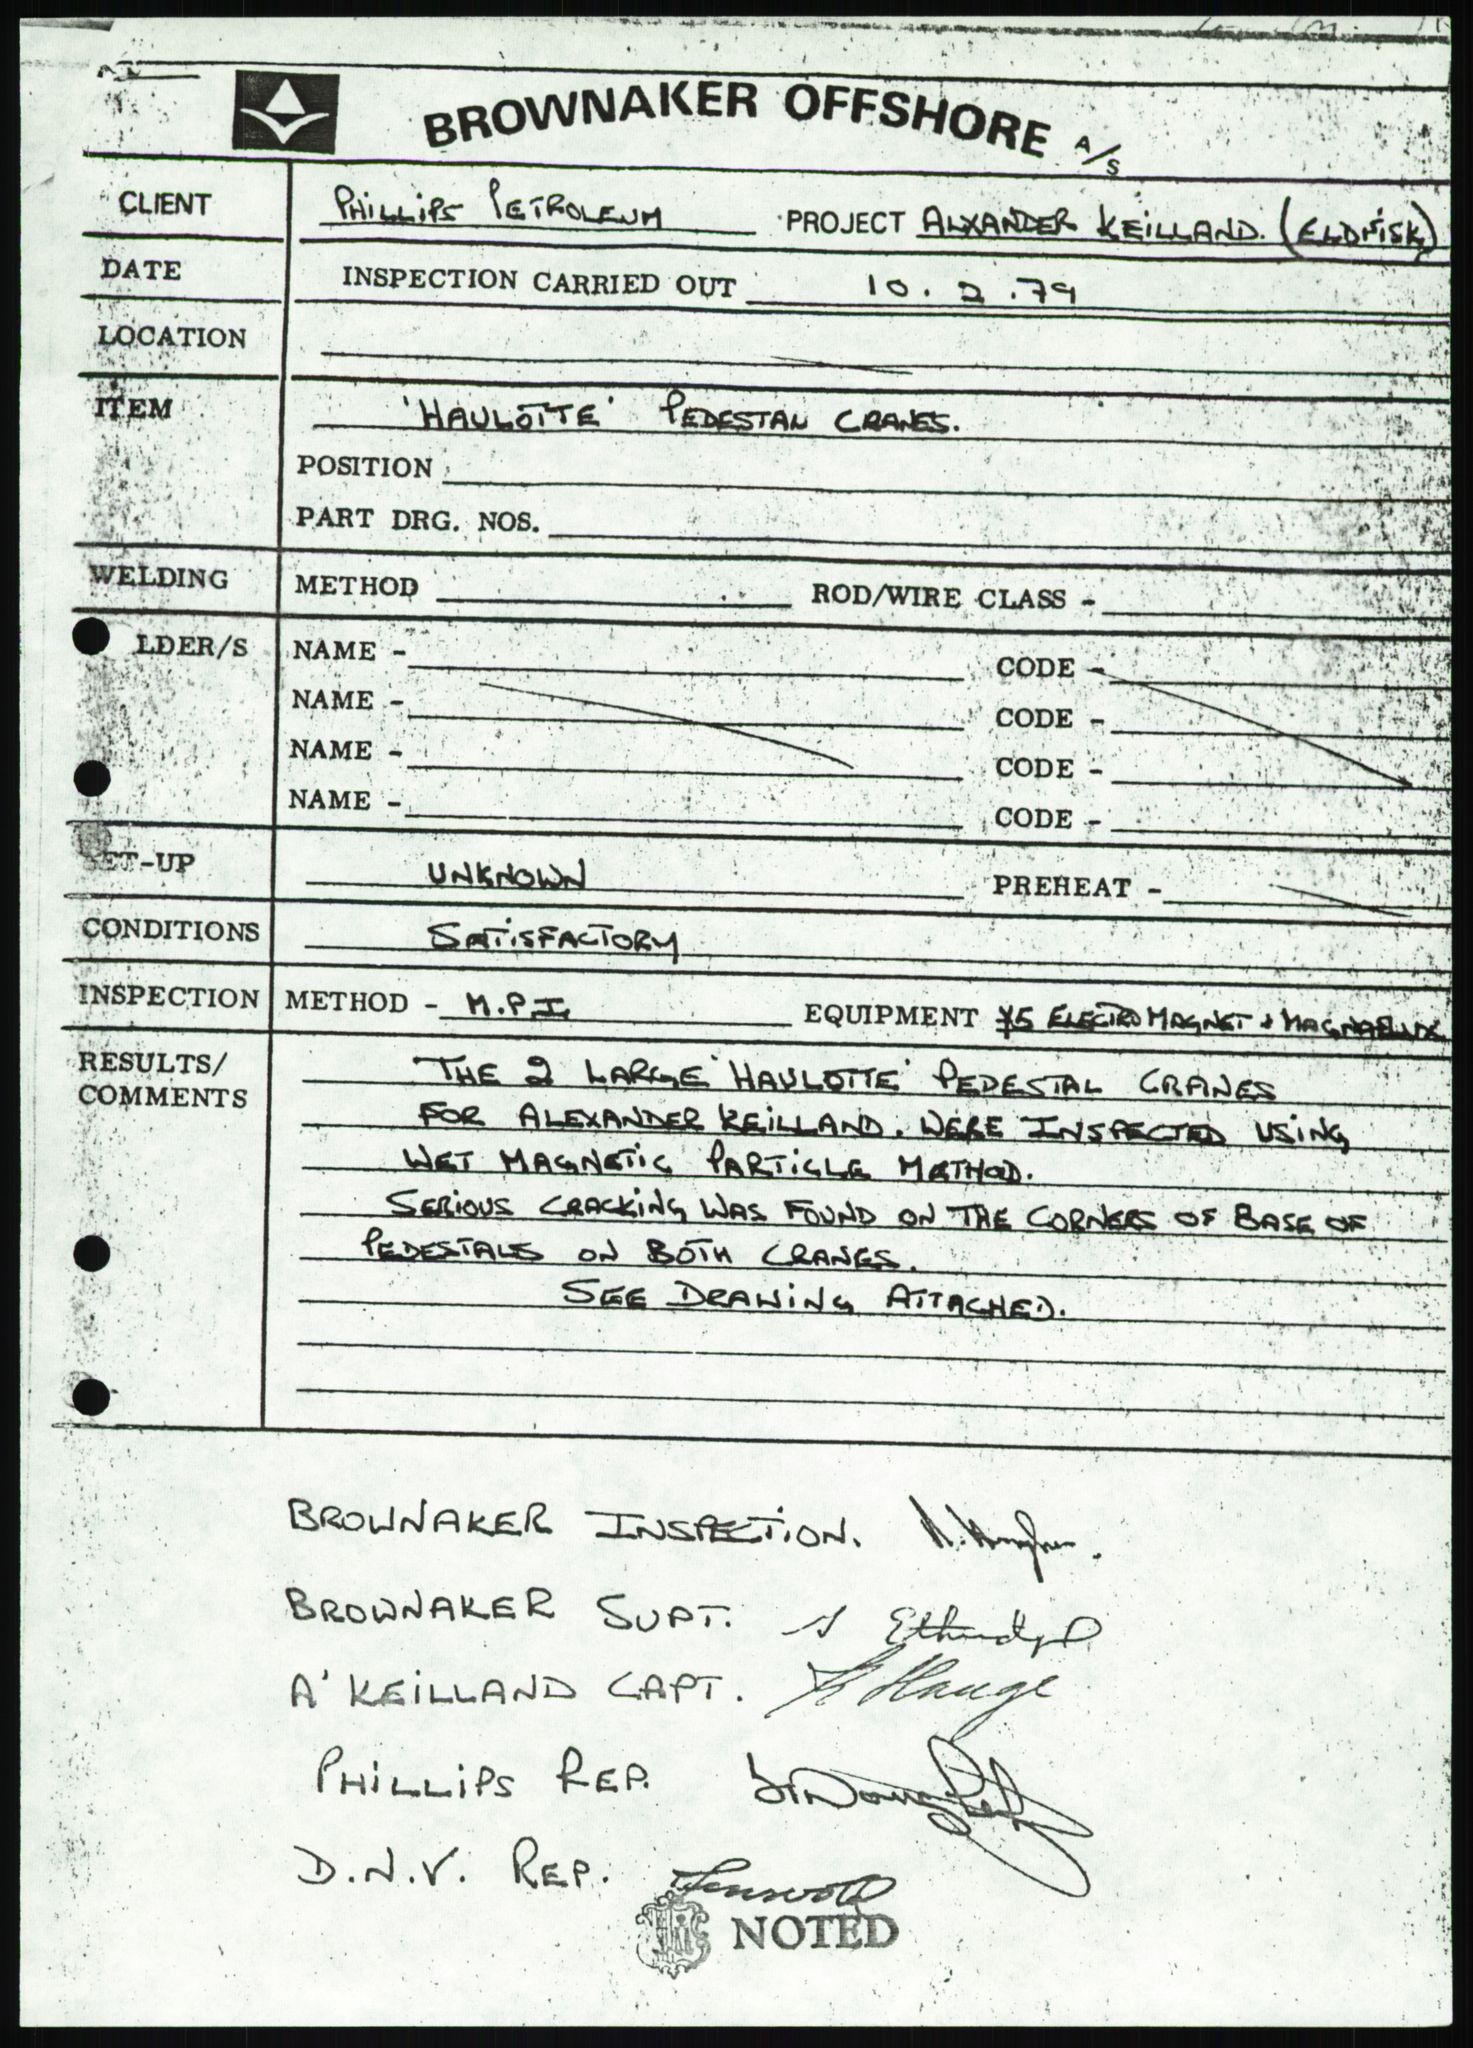 BROWNAKER OFFSHORE A/S
CLIENT PHILLIPS PETROLEUM PROJECT ALXANDER KEILLAND. (ELDFISK)
DATE INSPECTION CARRIED OUT 10.2.79
LOCATION
ITEM 'HAULOTTE' PEDESTAL CRANES.
POSITION
PART DRG. NOS.
WELDING METHOD ROD/WIRE CLASS -
LDER/S NAME - CODE -
NAME - CODE -
NAME - CODE -
NAME - CODE -
ET-UP UNKNOWN PREHEAT -
CONDITIONS SATISFACTORY
INSPECTION METHOD - M.P.I. EQUIPMENT Y5 ELECTRO MAGNET + MAGNAFLUX
RESULTS/ THE 2 LARGE 'HAULOTTE' PEDESTAL CRANES
COMMENTS FOR ALEXANDER KEILLAND. WERE INSPECTED USING
WET MAGNETIC PARTICLE METHOD.
SERIOUS CRACKING WAS FOUND ON THE CORNERS OF BASE OF
PEDESTALS ON BOTH CRANES.
SEE DRAWING ATTACHED.
BROWNAKER INSPECTION.
BROWNAKER SUPT.
A'KEILLAND CAPT. Hauge
PHILLIPS REP.
D.N.V. REP.
NOTED